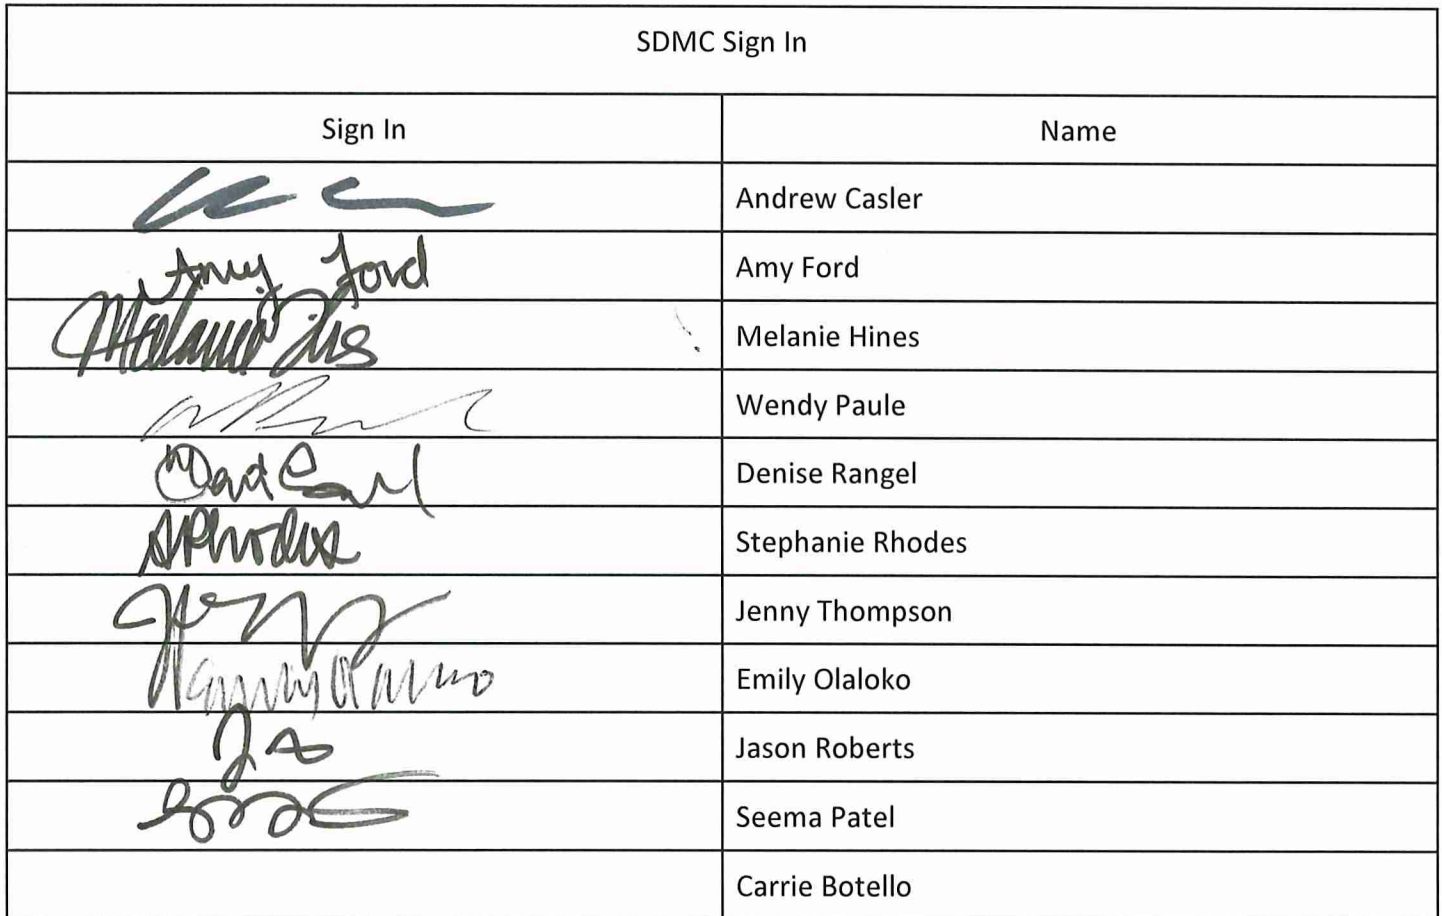 SDMC Sign In
Sign In Name
Andrew Casler
Amy Ford Amy Ford
Melanie Hines Melanie Hines
Wendy Paule
Denise Rangel
SRhodes Stephanie Rhodes
Jenny Thompson
Emily Olaloko
Jason Roberts
Seema Patel
Carrie Botello